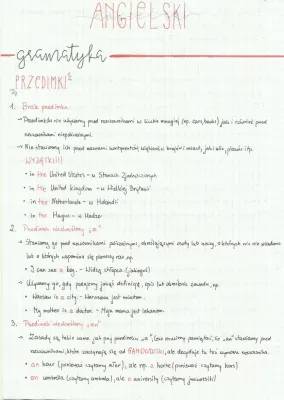 ANGIELSKI
gramatyka
PRZEDIMKI
1. Brak przedimka
→ Przedimka nie używamy przed rzeczownikami w liczbie mnogiej (np. cars, books) jak i również przed
rzeczownikami niepoliczalnymi.
→ Nie stawiamy ich przed nazwami kontynentów, większości krajów i miast, jak i ulic, placów itp.
WYJĄTKI!!!
• in the United States - w Stanach Zjednoczonych
• in the United Kingdom - w Wielkiej Brytanii
• in the Netherlands - w Holandii
• in the Hague - w Hadze
2. Przedimek nieokreślony „a"
→ Stawiamy go przed rzeczownikami policzalnymi, określającymi osoby lub rzeczy, o których nic nie wiadomo
lub o których wspomina się pierwszy raz np.
• I can see a boy. - Widzę chłopca (jakiegoś)
→ Używamy go, gdy podajemy jakąś definicję, opis lub określenie zawodu, np.
• Warsaw is a city. - Warszawa jest miastem.
• My mother is a doctor. - Moja mama jest lekarzem.
3. Przedimek nieokreślony „an"
→ Zasady są takie same jak przy przedimku „a", lecz musimy pamiętać, że „an" stawiamy przed
rzeczownikami, które zaczynają się od SAMOGŁOSKI, ale decyduje tu też wymowa wyrazu np.
• an hour (ponieważ czytamy ałer), ale np. a horse (ponieważ czytamy hors)
• an umbrella (czytamy ambrela), ale a university (czytamy juniwersiti)